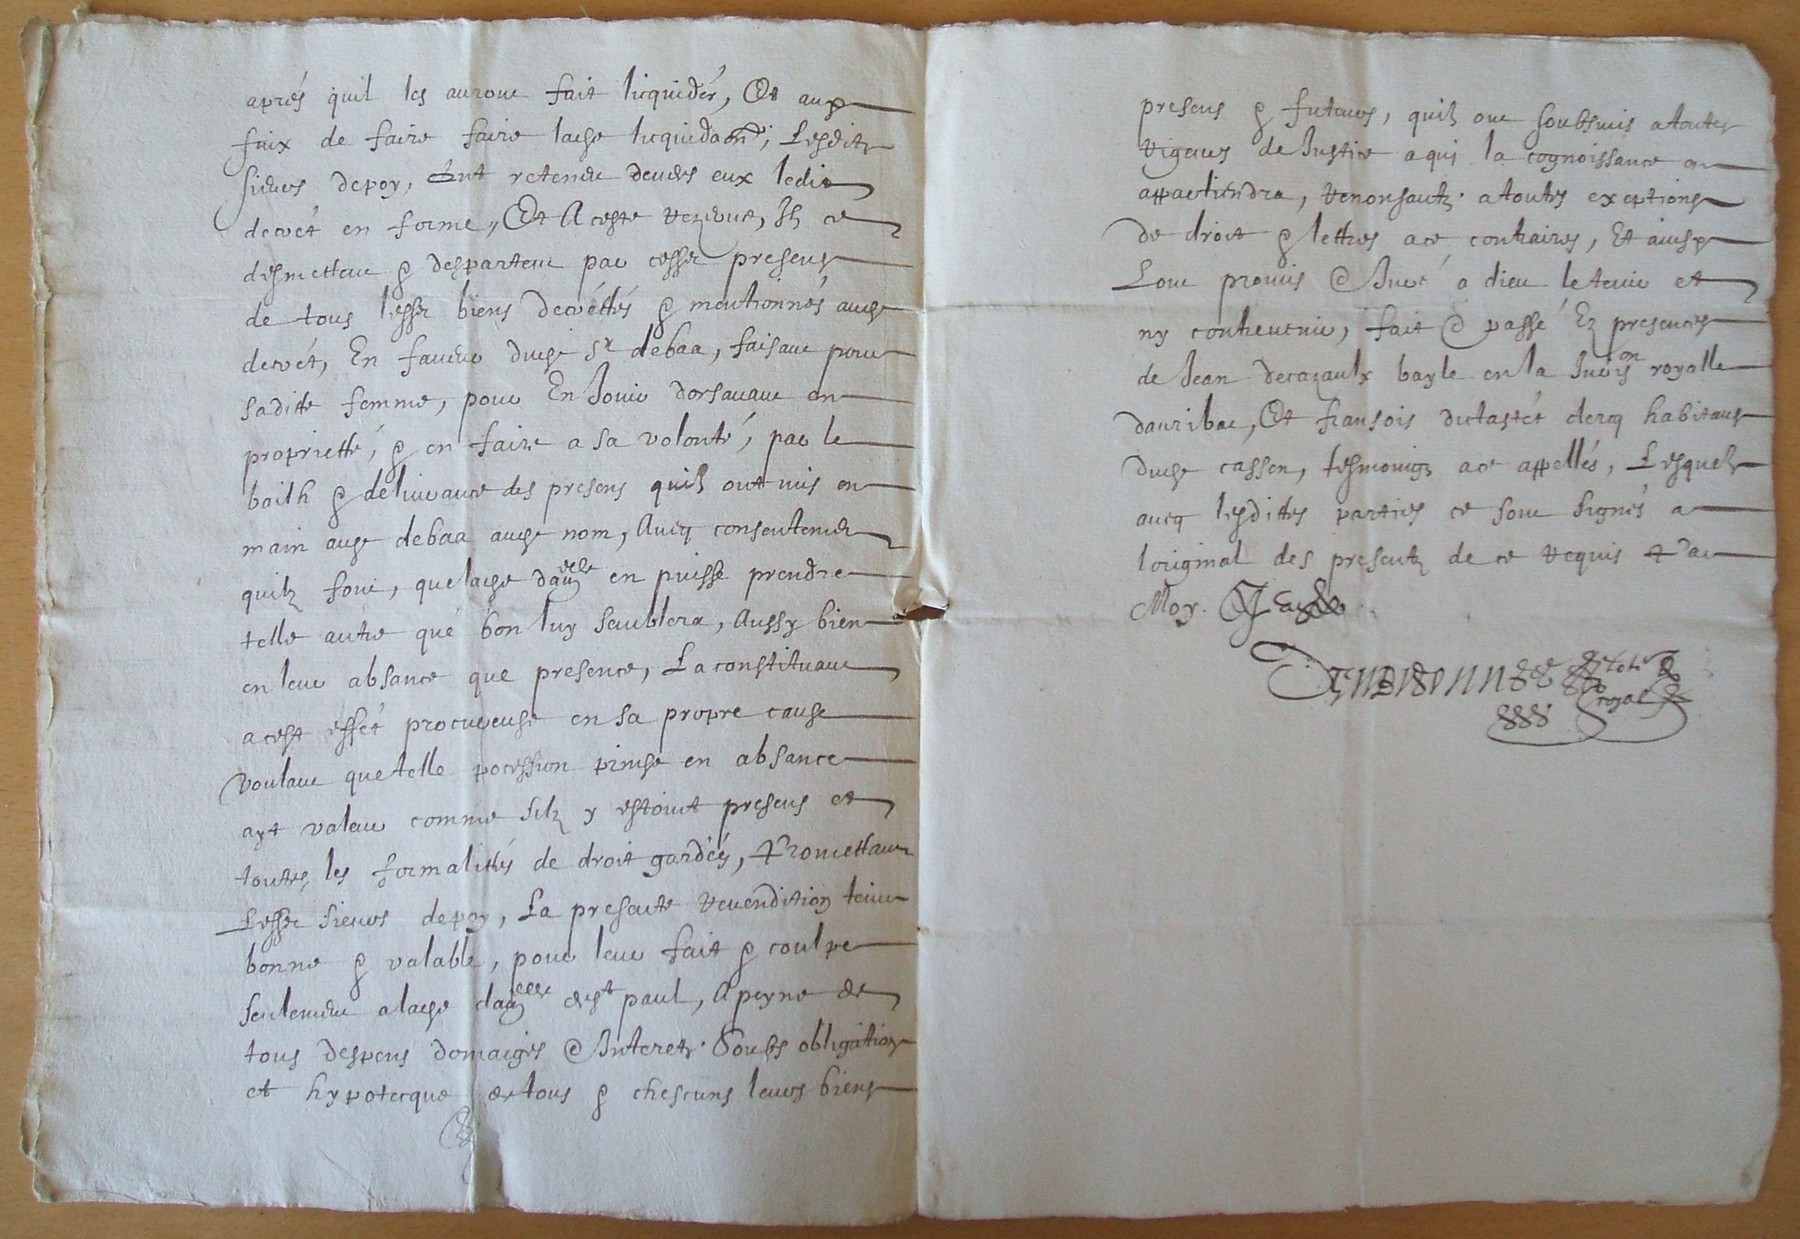 aprés quil les auront fait licquidér, Et aux
faix de faire faire lade licquidaon, Lesditz
sieurs depoy, Ont retenu deuers eux ledit
decrét en forme, Et A ceste reziout, Ilz ce
desmettent & despartent par cesses presens
de tous lesses biens decrétés & mentionnés audt
decrét, En faueur dudt sr debaa, faisant pour
saditte femme, pour En Jouir dorsauant en
proprietté, & en faire a sa volonté, par le
bailh & deliurance des presens quilz ont mis en
main audt debaa audt nom, Aueq consentement
quilz font, que lade dauelle en puisse prendre
telle autre que bon luy semblera, Aussy bien
en leur absance que presence, La constituant
a cest effét procureuse en sa propre cause
voulant que telle pocession prinse en absance
ayt valeur comme silz y estoint presens et
toutes les formalittés de droit gardées, Promettant
Lesses sieurs depoy, La presente reuendition tenir
bonne & valable, pour leur fait & coulpe
seulement a lade dauelle de st paul, A peyne de
tous despens domaiges & Interetz. Soubs obligation
et hypotecque de tous & chescuns leurs biens
presens & futeurs, quilz ont soubsmis a toutes
rigeurs de Justice a qui la cognoissance en
appartiendra, renonsantz a toutes exceptions
de droit & lettres a ce contraires, Et ainsy
Lont promis & Juré a dieu le tenir et
ny contreuenir, fait & passé Ez presences
de Jean decazaulx bayle en la Jurison royalle
dauribat, Et fransois dutastét clercq habitans
dudt cassen, tesmoingz a ce appellés, Lesquelz
aueq lesdittes parties ce sont signés a
loriginal des presentz de ce requis Par
Moy.
royal